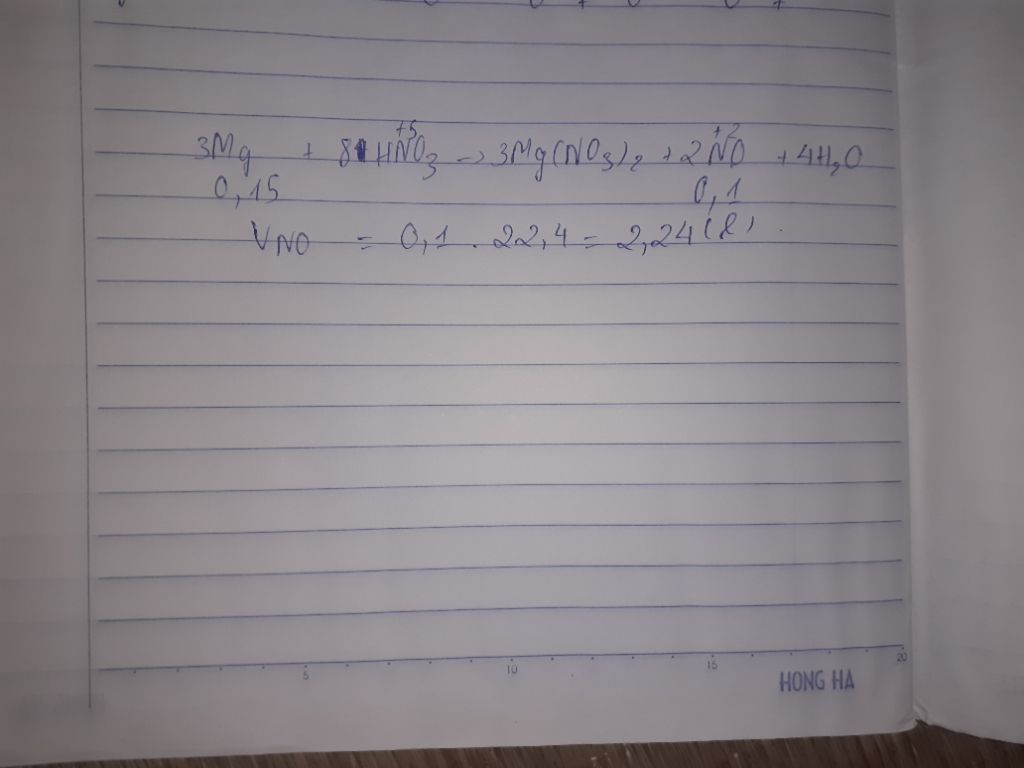 3Mg + 8HNO3 → 3Mg(NO3)2 + 2NO + 4H2O
+5 +2
0,15 0,1
VNO = 0,1 . 22,4 = 2,24 (l).
5 10 15 20
HONG HA